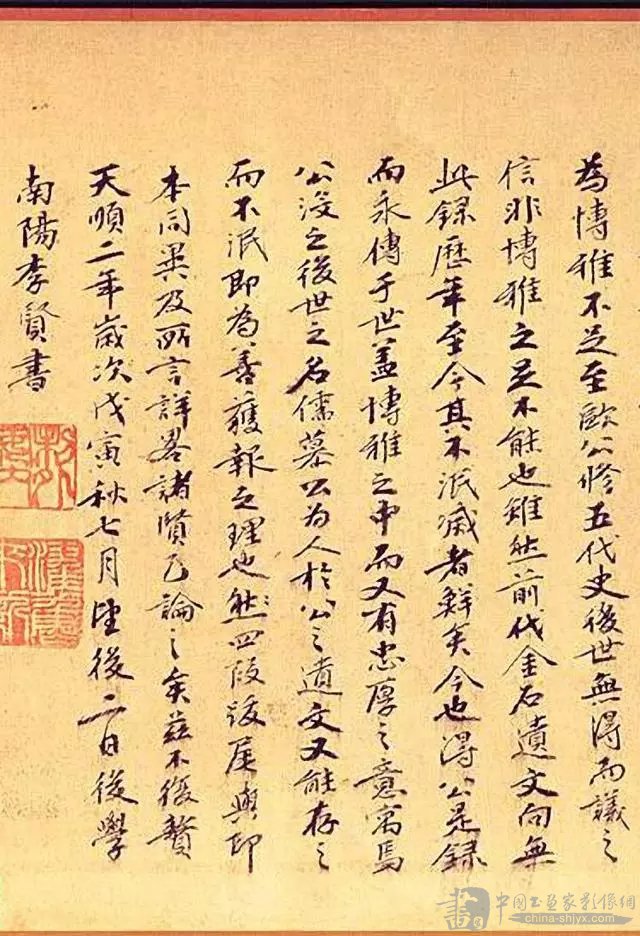 為博雅不足至歐公修五代史後世無得而議之
信非博雅之足不能也雖然前代金石遺文向無
此錄歷年至今其不泯滅者鮮矣今也得公是錄
而永傳于世蓋博雅之中而又有忠厚之意寓焉
公沒之後世之名儒慕公為人於公之遺文又能存之
而不泯即為善獲報之理也然四段跋尾與印
本同異及所言詳畧諸賢已論之矣茲不復贅
天順二年歲次戊寅秋七月望後二日後學
南陽李賢書
中國書畫家影像網
china-shjyx.com